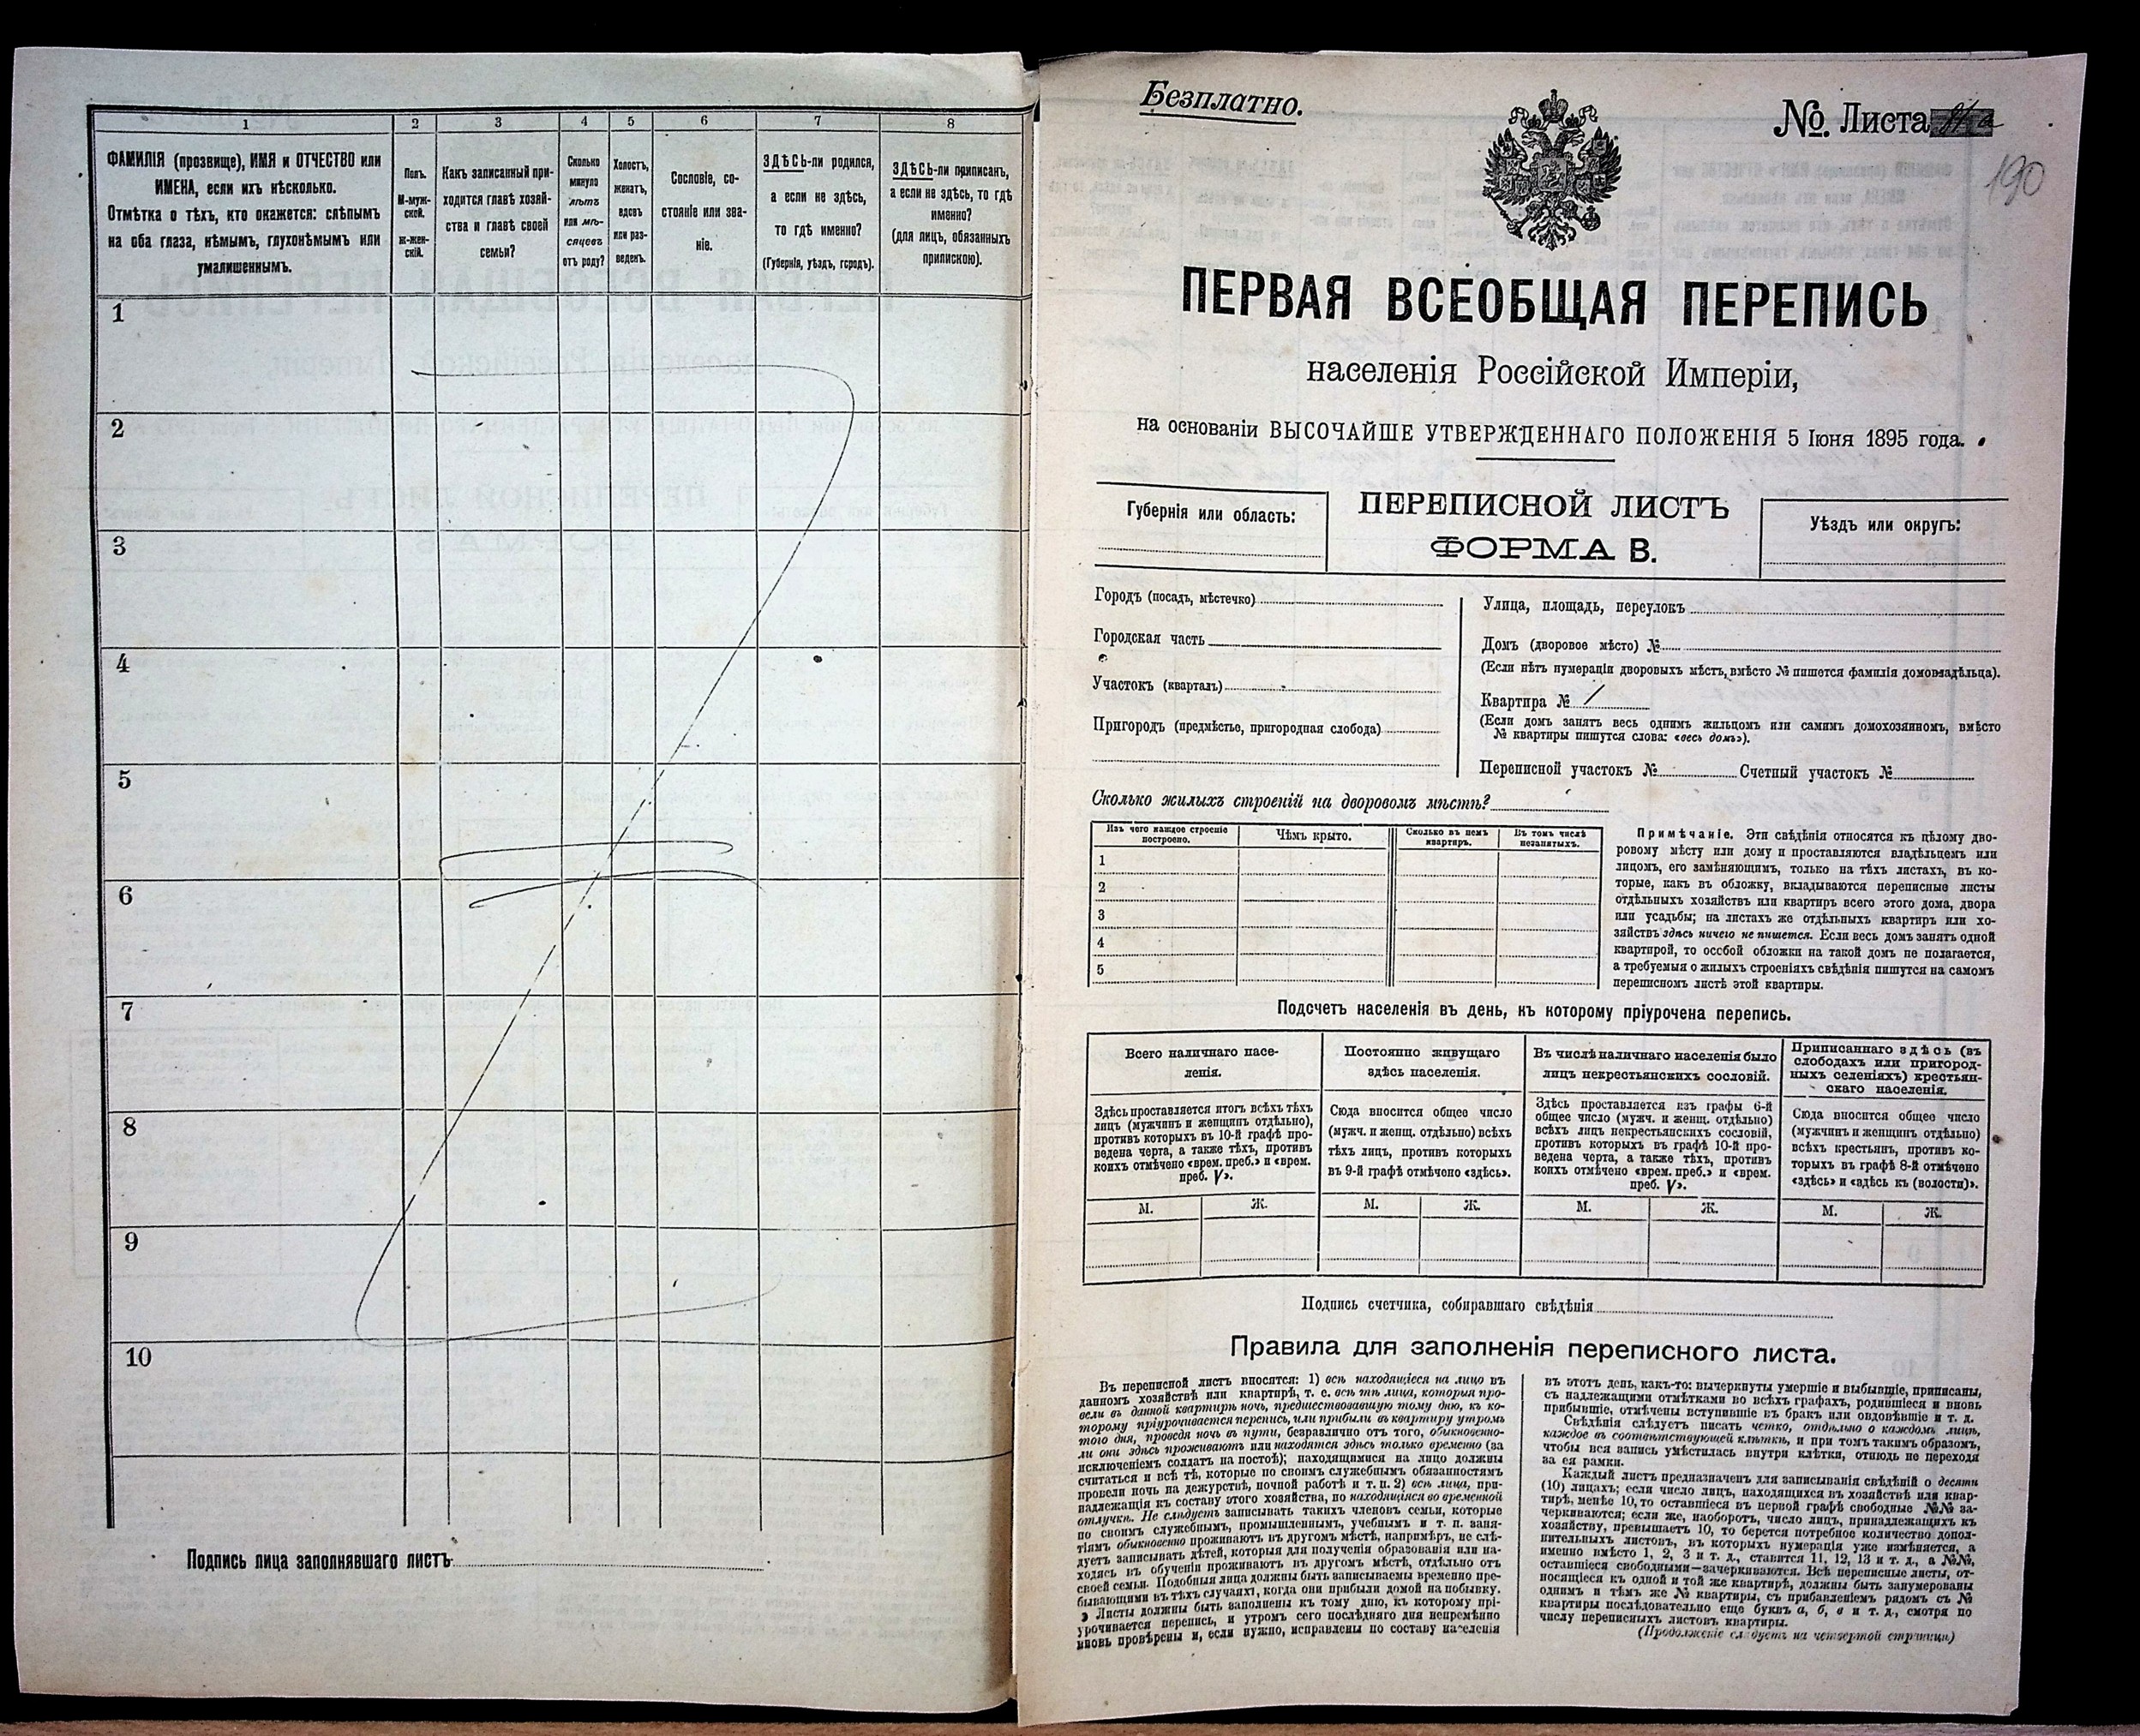 1
2
3
4
5
6
7
8
ФАМИЛІЯ (прозвище), ИМЯ и ОТЧЕСТВО или
ИМЕНА, если ихъ нѣсколько.
Отмѣтка о тѣхъ, кто окажется: слѣпымъ
на оба глаза, нѣмымъ, глухонѣмымъ или
умалишеннымъ.
Полъ.
М-муж-
ской.
ж-жен-
скій.
Какъ записанный при-
ходится главѣ хозяй-
ства и главѣ своей
семьи?
Сколько
минуло
лѣтъ
или мѣ-
сяцевъ
отъ роду?
Холостъ,
женатъ,
вдовъ
или раз-
веденъ.
Сословіе, со-
стояніе или зва-
ніе.
ЗДѢСЬ-ли родился,
а если не здѣсь,
то гдѣ именно?
(Губернія, уѣздъ, городъ).
ЗДѢСЬ-ли приписанъ,
а если не здѣсь, то гдѣ
именно?
(для лицъ, обязанныхъ
припискою).
1
2
3
4
5
6
7
8
9
10
Подпись лица заполнявшаго листъ
Безплатно.
№. Листа
190
ПЕРВАЯ ВСЕОБЩАЯ ПЕРЕПИСЬ
населенія Россійской Имперіи,
на основаніи ВЫСОЧАЙШЕ УТВЕРЖДЕННАГО ПОЛОЖЕНІЯ 5 Іюня 1895 года.
Губернія или область:
ПЕРЕПИСНОЙ ЛИСТЪ
ФОРМА В.
Уѣздъ или округъ:
Городъ (посадъ, мѣстечко)
Городская часть
Участокъ (кварталъ)
Пригородъ (предмѣстье, пригородная слобода)
Улица, площадь, переулокъ
Домъ (дворовое мѣсто) №
(Если нѣтъ нумераціи дворовыхъ мѣстъ, вмѣсто № пишется фамилія домовладѣльца).
Квартира № 1
(Если домъ занятъ весь однимъ жильцомъ или самимъ домохозяиномъ, вмѣсто
№ квартиры пишутся слова: «весь домъ»).
Переписной участокъ № Счетный участокъ №
Сколько жилыхъ строеній на дворовомъ мѣстѣ?
Изъ чего каждое строеніе
построено.
Чѣмъ крыто.
Сколько въ немъ
квартиръ.
Въ томъ числѣ
незанятыхъ.
1
2
3
4
5
Примѣчаніе. Эти свѣдѣнія относятся къ цѣлому дво-
ровому мѣсту или дому и проставляются владѣльцемъ или
лицомъ, его замѣняющимъ, только на тѣхъ листахъ, въ ко-
торые, какъ въ обложку, вкладываются переписные листы
отдѣльныхъ хозяйствъ или квартиръ всего этого дома, двора
или усадьбы; на листахъ же отдѣльныхъ квартиръ или хо-
зяйствъ здѣсь ничего не пишется. Если весь домъ занятъ одной
квартирой, то особой обложки на такой домъ не полагается,
а требуемыя о жилыхъ строеніяхъ свѣдѣнія пишутся на самомъ
переписномъ листѣ этой квартиры.
Подсчетъ населенія въ день, къ которому пріурочена перепись.
Всего наличнаго насе-
ленія.
Постоянно живущаго
здѣсь населенія.
Въ числѣ наличнаго населенія было
лицъ некрестьянскихъ сословій.
Приписаннаго здѣсь (въ
слободахъ или пригород-
ныхъ селеніяхъ) крестьян-
скаго населенія.
Здѣсь проставляется итогъ всѣхъ тѣхъ
лицъ (мужчинъ и женщинъ отдѣльно),
противъ которыхъ въ 10-й графѣ про-
ведена черта, а также тѣхъ, противъ
коихъ отмѣчено «врем. преб.» и «врем.
преб. V».
Сюда вносится общее число
(мужч. и женщ. отдѣльно) всѣхъ
тѣхъ лицъ, противъ которыхъ
въ 9-й графѣ отмѣчено «здѣсь».
Здѣсь проставляется изъ графы 6-й
общее число (мужч. и женщ. отдѣльно)
всѣхъ лицъ некрестьянскихъ сословій,
противъ которыхъ въ графѣ 10-й про-
ведена черта, а также тѣхъ, противъ
коихъ отмѣчено «врем. преб.» и «врем.
преб. V».
Сюда вносится общее число
(мужчинъ и женщинъ отдѣльно)
всѣхъ крестьянъ, противъ ко-
торыхъ въ графѣ 8-й отмѣчено
«здѣсь» и «здѣсь къ (волости)».
М. Ж. М. Ж. М. Ж. М. Ж.
Подпись счетчика, собиравшаго свѣдѣнія
Правила для заполненія переписного листа.
Въ переписной листъ вносятся: 1) всѣ находящіеся на лицо въ
данномъ хозяйствѣ или квартирѣ, т. е. всѣ тѣ лица, которыя про-
вели въ данной квартирѣ ночь, предшествовавшую тому дню, къ ко-
торому пріурочивается перепись, или прибыли въ квартиру утромъ
того дня, проведя ночь въ пути, безразлично отъ того, обыкновенно-
ли они здѣсь проживаютъ или находятся здѣсь только временно (за
исключеніемъ солдатъ на постоѣ); находящимися на лицо должны
считаться и всѣ тѣ, которые по своимъ служебнымъ обязанностямъ
провели ночь на дежурствѣ, ночной работѣ и т. п. 2) всѣ лица, при-
надлежащія къ составу этого хозяйства, но находящіяся во временной
отлучкѣ. Не слѣдуетъ записывать такихъ членовъ семьи, которые
по своимъ служебнымъ, промышленнымъ, учебнымъ и т. п. заня-
тіямъ обыкновенно проживаютъ въ другомъ мѣстѣ, напримѣръ, не слѣ-
дуетъ записывать дѣтей, которыя для полученія образованія или на-
ходясь въ обученіи проживаютъ въ другомъ мѣстѣ, отдѣльно отъ
своей семьи. Подобныя лица должны быть записываемы временно пре-
бывающими въ тѣхъ случаяхъ, когда они прибыли домой на побывку.
Листы должны быть заполнены къ тому дню, къ которому прі-
урочивается перепись, и утромъ сего послѣдняго дня непремѣнно
вновь провѣрены и, если нужно, исправлены по составу населенія
въ этотъ день, какъ-то: вычеркнуты умершіе и выбывшіе, приписаны,
съ надлежащими отмѣтками во всѣхъ графахъ, родившіеся и вновь
прибывшіе, отмѣчены вступившіе въ бракъ или овдовѣвшіе и т. д.
Свѣдѣнія слѣдуетъ писать четко, отдѣльно о каждомъ лицѣ,
каждое въ соотвѣтствующей клѣткѣ, и при томъ такимъ образомъ,
чтобы вся запись умѣстилась внутри клѣтки, отнюдь не переходя
за ея рамки.
Каждый листъ предназначенъ для записыванія свѣдѣній о десяти
(10) лицахъ; если число лицъ, находящихся въ хозяйствѣ или квар-
тирѣ, менѣе 10, то оставшіеся въ первой графѣ свободные №№ за-
черкиваются; если же, наоборотъ, число лицъ, принадлежащихъ къ
хозяйству, превышаетъ 10, то берется потребное количество допол-
нительныхъ листовъ, въ которыхъ нумерація уже измѣняется, а
именно вмѣсто 1, 2, 3 и т. д., ставятся 11, 12, 13 и т. д., а №№,
оставшіеся свободными—зачеркиваются. Всѣ переписные листы, от-
носящіеся къ одной и той же квартирѣ, должны быть занумерованы
однимъ и тѣмъ же № квартиры, съ прибавленіемъ рядомъ съ №
квартиры послѣдовательно еще буквъ а, б, в и т. д., смотря по
числу переписныхъ листовъ квартиры.
(Продолженіе слѣдуетъ на четвертой страницѣ)